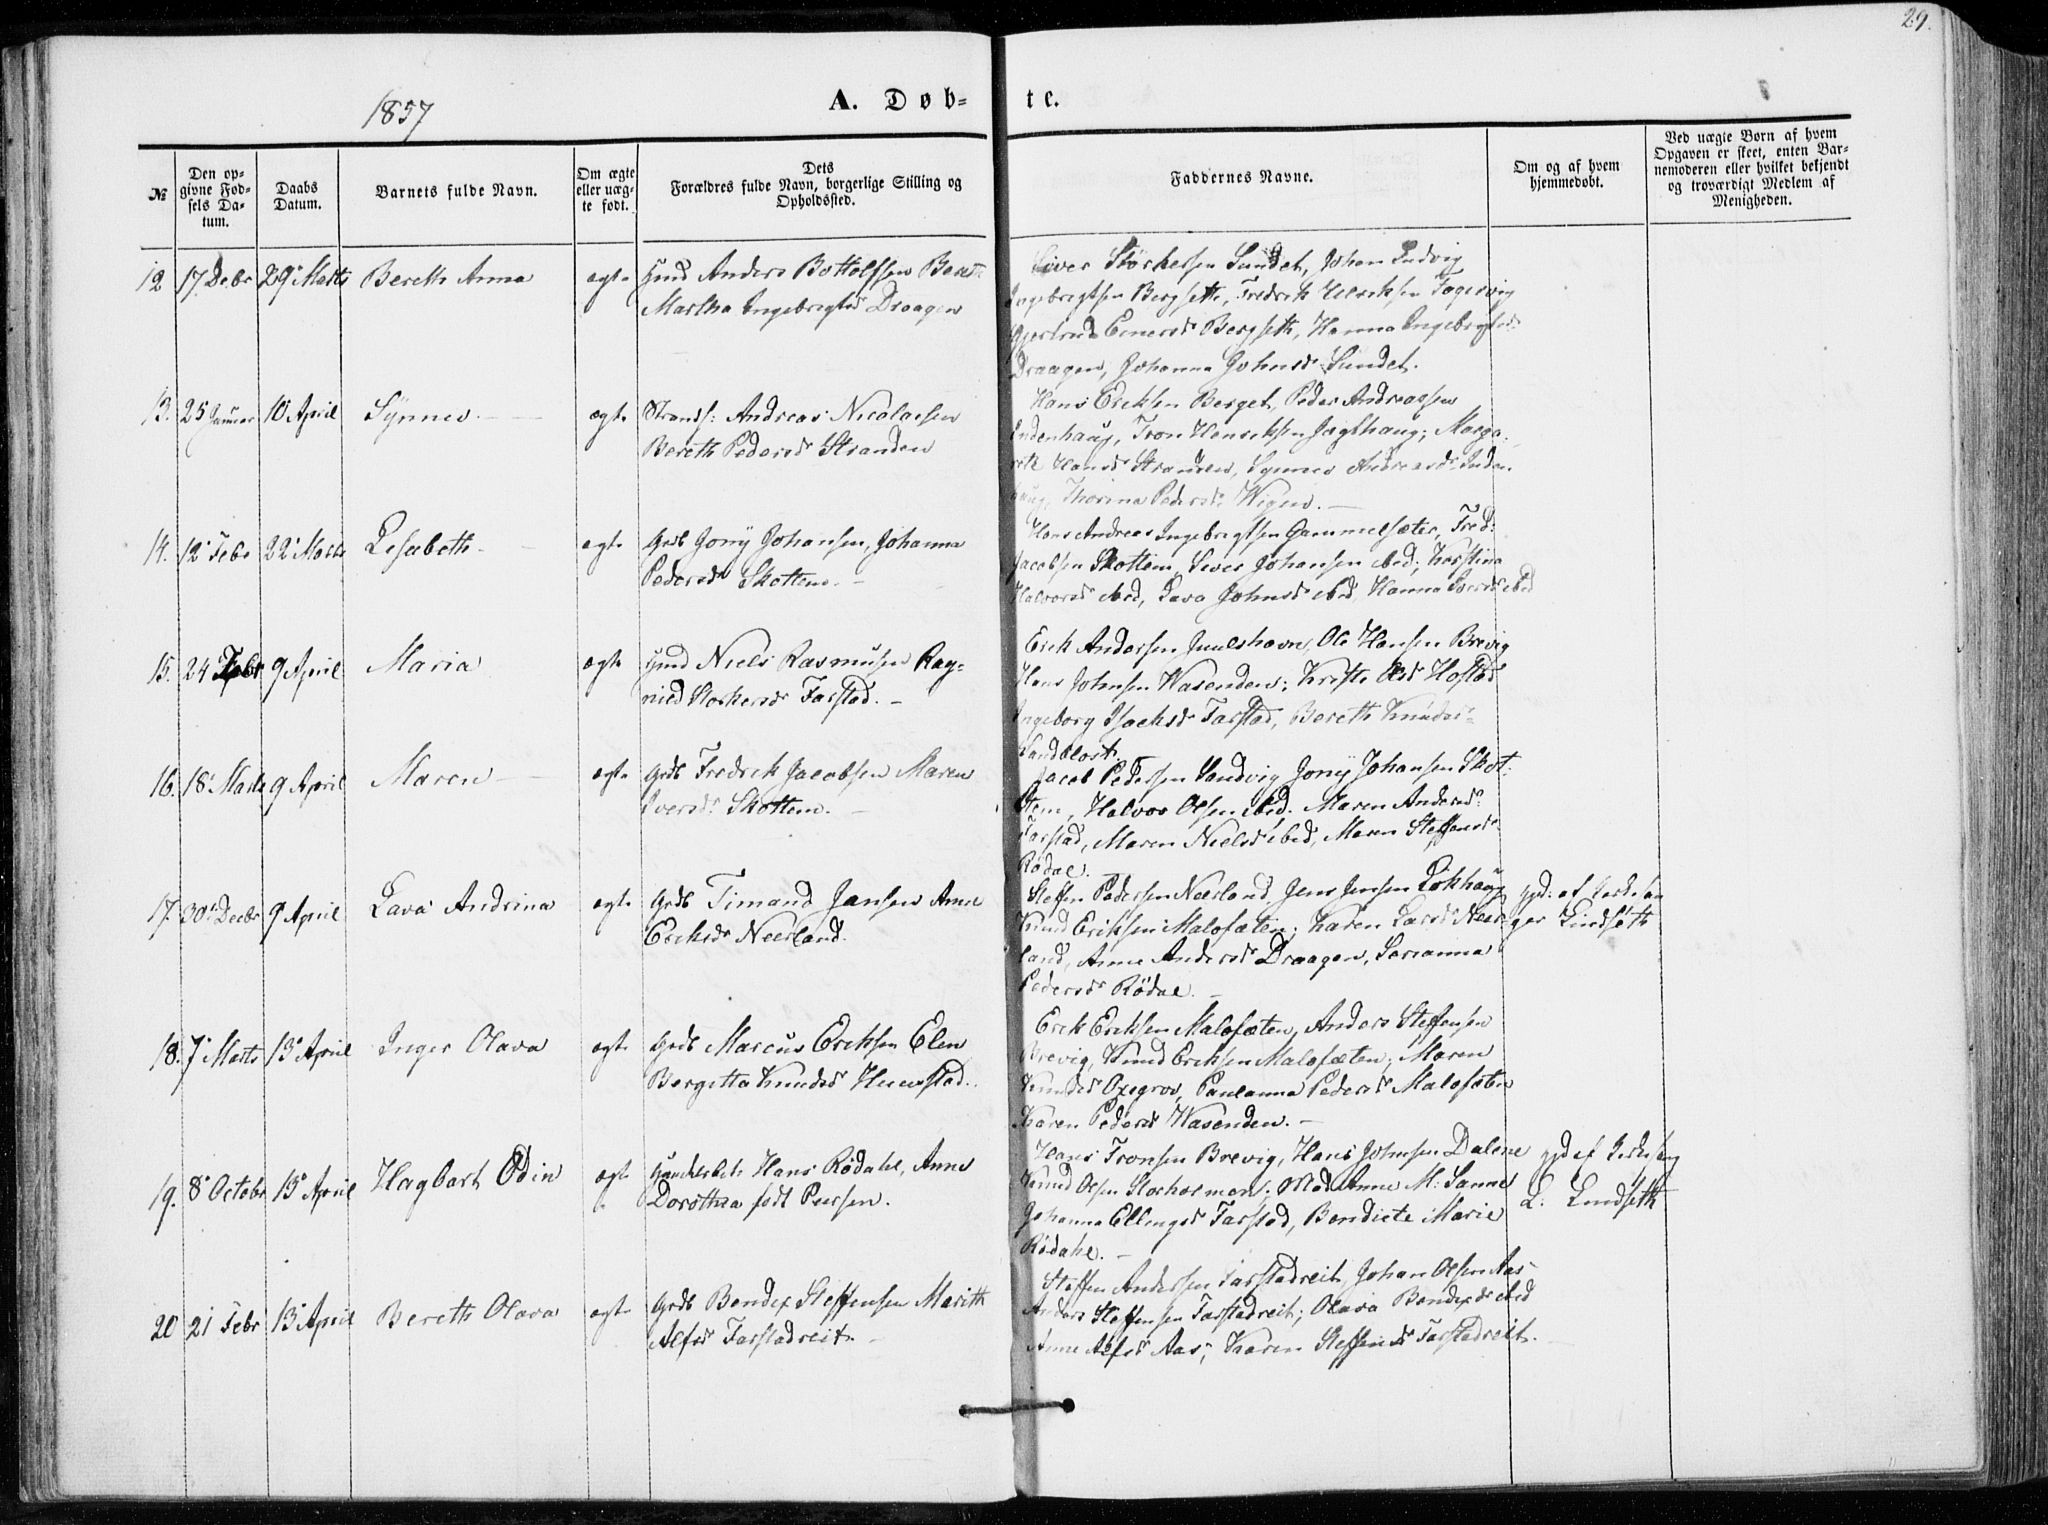 29.
1857
A. Døb-
te.
№
Den op-
givne Fød-
sels Da-
tum.
Daabs
Datum.
Barnets fulde Navn.
Om ægte
eller uæg-
te født.
Dets
Forældres fulde Navn, borgerlige Stilling og
Opholdssted.
Faddernes Navne.
Om og af hvem
hjemmedøbt.
Ved uægte Børn af hvem
Opgaven er skeet, enten Bar-
nemoderen eller hvilket bekjendt
og troværdigt Medlem af
Menigheden.
12 17 Debr 29 Marts Bereth Anna ægte Hmd Anders Bottolfsen Bereth
Martha Ingebrigtsdr Draagen
Siver Størkersen Sundet, Johan Ludvig
Ingebrigtsen Bergseth, Fredrik Ulriksen Fagervig
Gjertrud Einersdr Bergseth, Hanna Ingebrigtsdr
Draagen, Johanna Johnsdr Sundet.
13. 25 Januar 10 April Synnev ægte Strands: Andreas Nicolaesen
Bereth Pedersdr Stranden
Hans Eriksen Berget, Peder Andreassen
Indenhaug, Tron Henriksen Jaglhaug; Marga-
reth Hansdr Stranden, Synnev Andreasdr Inden-
haug, Thorina Pedersdr Wigen.
14. 12 Febr 22 Marts Lisabeth ægte Grdb Jony Johansen, Johanna
Pedersdr Skottem.
Hans Andreas Ingebrigtsen Gammelsæter, Fred:
Jacobsen Skottem, Siver Johansen ibid; Kirstina
Halvorsdr ibid, Lava Johnsdr ibid, Hanna Iversdr ibid
15. 24 Febr 9 April Maria ægte Hmd Niels Rasmusen Rag-
nild Storkersdr Farstad.
Erik Andersen Juulshavn, Ole Hansen Brevig
Hans Johnsen Wasenden; Kirsti Olsdr Hostad
Ingeborg Isachsdr Farstad, Bereth Knudsdr
Sandblost.
16. 18 Marts 9 April Maren ægte Grdb Fredrik Jacobsen Maren
Iversdr Skottem.
Jacob Pedersen Sandvig Jony Johansen Skot-
tem, Halvor Olsen ibid. Maren Andersdr
Farstad, Maren Nielsdr ibid, Maren Steffensdr
Rødal.
17. 30 Decbr 9 April Lava Andrina ægte Grdb Timand Jansen Anne
Eriksdr Neerland.
Steffen Pedersen Neerland, Jens Jensen Løkhaug
Knud Eriksen Malosæten; Karen Larsdr Neer-
land, Anne Andersdr Draagen, Sarianna
Pedersdr Rødal.
gjd: af Kirkesan-
ger Lindseth
18. 7 Marts 13 April Inger Olava ægte Grdb Marcus Eriksen Elen
Bergitta Knudsdr Huustad.
Erik Eriksen Malosæten, Anders Steffensen
Brevig, Knud Eriksen Malosæten; Maren
Knudsdr Oxegrov, Paulanna Pedersdr Malosæten
Karen Pedersdr Wasenden.
19. 8 Octobr 13 April Hagbart Odin ægte Handelsbetj. Hans Rødahl, Anne
Dorothea født Bersen.
Hans Tronsen Brevig, Hans Johnsen Dalene
Knud Olsen Storholmen; Mad. Anne M: Sanne
Johanna Ellingsdr Farstad, Bendicte Marie
Rødahl.
gjd af Kirkesang
L. Lindseth
20 21 Febr 13 April Bereth Olava ægte Grdb Bendix Steffensen Marith
Alfsdr Farstadreit.
Steffen Andersen Farstadreit, Johan Olsen Aas
Anders Steffensen Farstadreit; Olava Bendixdr ibid
Anne Alfsdr Aas; Karen Steffensdr Farstadreit.